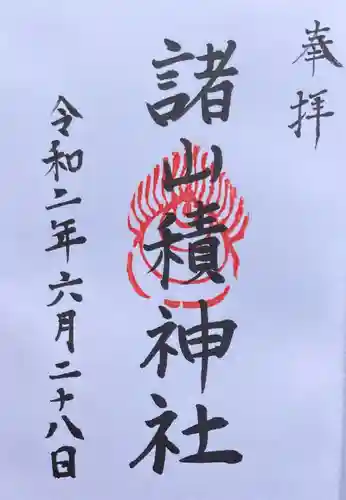 奉拝
諸山積神社
令和二年六月二十八日